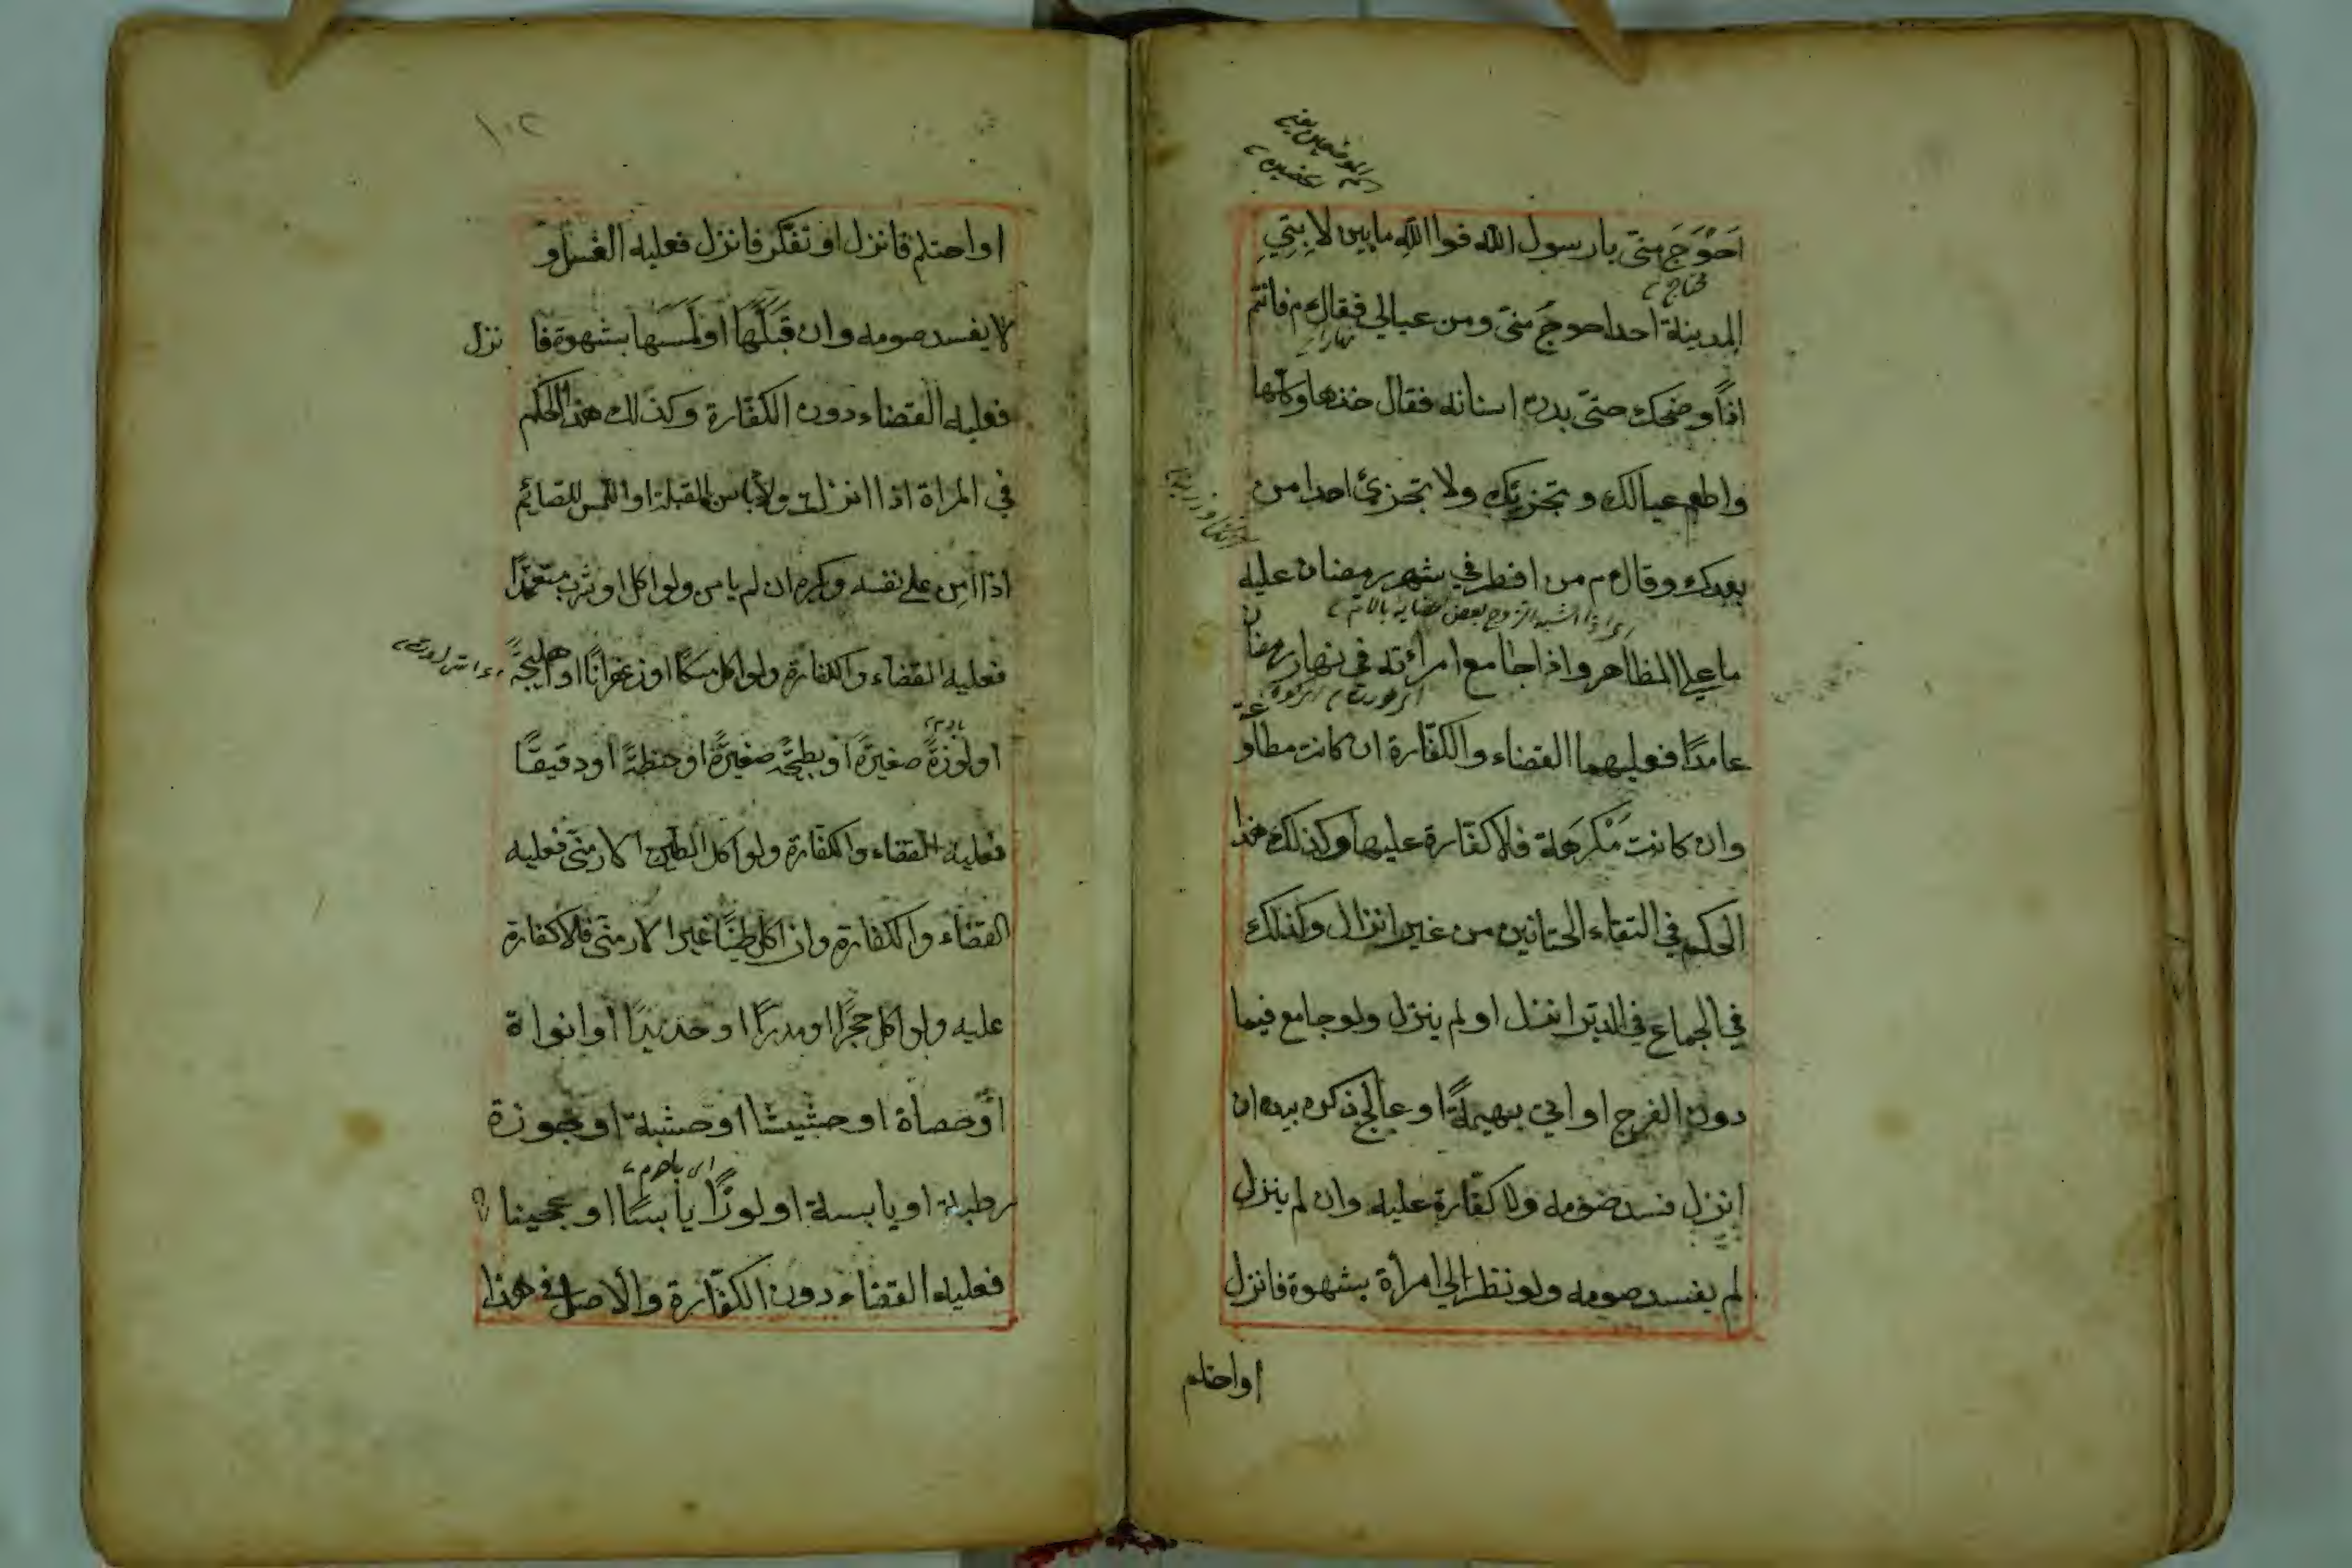 احَوْجَ منّى يارسول الله فوا الله مابين لابِتَيِ
محتاج
المدينة احدا حوجُ منّى ومن عيالى فقال م فانتم
اذاً وضحك حتى بدت اسنانه فقال خذها وكلها
واطعم عيالك وتجزيك ولا تجزئ احدا من
بعدك وقال م من افطر في شهر رمضان عليه
اى اذا اشبه الزوج بعض اعضايه بالام
ما على المظاهر واذا جامع امرأته فى نهار رمضان
عامدًا فعليهما القضاء والكفّارة ان كانت مطاوعة
وان كانت مَكْرهَة فلا كفّارة عليها وكذلك هذا
الحكم فى التقاء الختانين من غير انزال وكذلك
في الجماع فى الدبر انزل او لم ينزل ولو جامع فيما
دون الفرج او اتى بهيمةً او عالج ذكره بيده ان
انزل فسد صومه ولا كفّارة عليه وان لم ينزل
لم يفسد صومه ولو نظر الى امرأة بشهوة فانزل
او احتلم
١٠٢
او احتلم فانزل او تفكّر فانزل فعليه الغسل و
لا يفسد صومه وان قَبَّلَهَا او لمَسَها بشهوة فا نزل
فعليه القضاء دون الكفّارة وكذلك هذا الحكم
في المراة اذا انزلت ولا باس بالقبلة او اللمس للصائم
اذا امِن على نفسه وكره ان لم يامن ولو اكل او شرب متعمّدًا
فعليه القضاء والكفارة ولو اكل مسكًا او زعفرانًا او هليجةً
او لوزةً صغيرةً او بطيخةً صغيرةً او حنطةً او دقيقًا
فعليه القضاء والكفّارة ولو اكل الطين الارمنّى فعليه
القضاء والكفارة وان اكل طينًا غير الارمنّى فلا كفارة
عليه ولو اكل حجرًا او مدرًا او حديدًا او انواة
او حصاة او حشيشا او خشبة او بجوزة
اى بادم
رطبة او يابسة او لوزًا يابسًا او عجينا
فعليه القضاء دون الكفّارة والاصل فى هذا